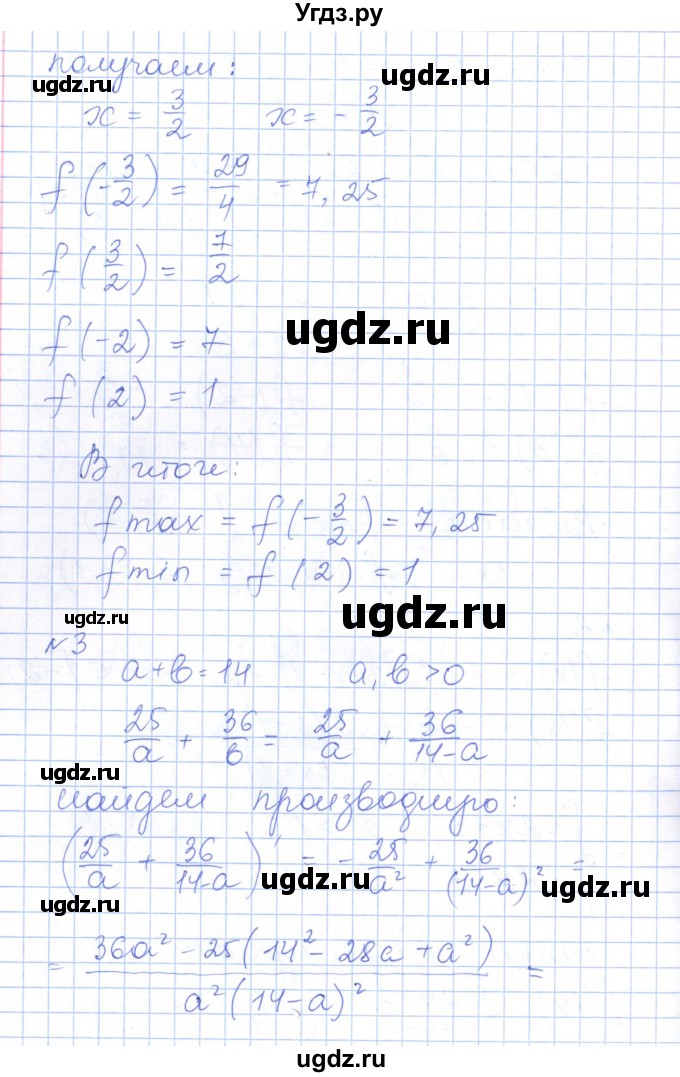 Угдз.ру
получаем:
ugdz.ru ugdz.ru
x = 3/2   x = - 3/2
f(-3/2) = 29/4 = 7,25
f(3/2) = 7/2
ugdz.ru
f(-2) = 7
f(2) = 1
В итоге:
f max = f(-3/2) = 7,25
f min = f(2) = 1
ugdz.ru ugdz.ru
№3
a+в=14   a, в >0
25/a + 36/в = 25/a + 36/(14-a)
ugdz.ru
найдем производную:
(25/a + 36/(14-a))' = - 25/a² + 36/(14-a)² =
ugdz.ru ugdz.ru ugdz.ru
= (36a² - 25(14² - 28a + a²))/(a²(14-a)²) =
ugdz.ru